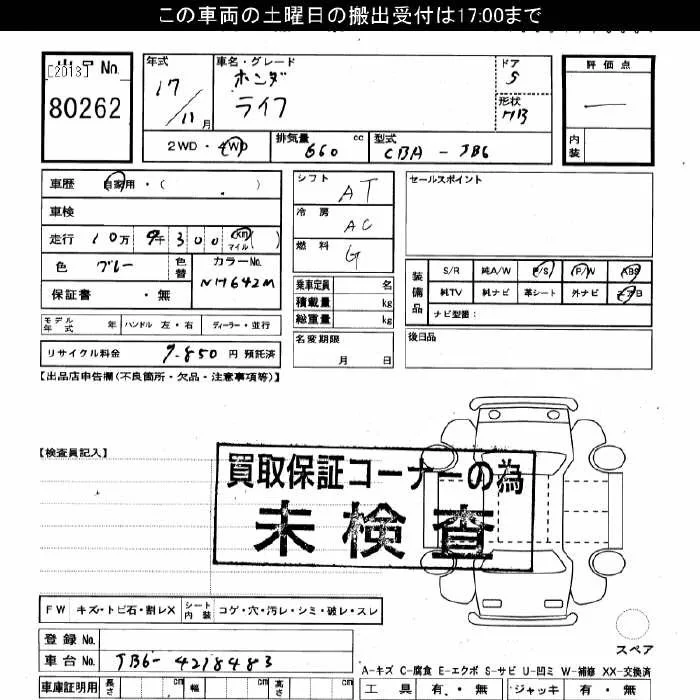 この車両の土曜日の搬出受付は17:00まで
[2013] No.
80262
年式
17/11月
車名・グレード
ホンダ
ライフ
ドア
5
形状
評価点
内装
2WD・4WD
排気量 660 cc
型式 CBA-JB6
車歴 自家用・( )
車検
走行 10万9千300 km マイル ( )
色 ブルー 色替
カラーNo. NH642M
保証書 ・無
モデル年式 年 ハンドル 左・右 ディーラー・並行
リサイクル料金 7.850 円 預託済
シフト AT
冷房 AC
燃料 G
乗車定員 名
積載量 kg
総重量 kg
名変期限 月 日
セールスポイント
装備品
S/R 純A/W P/S P/W ABS
純TV 純ナビ 革シート 外ナビ エアB
ナビ型番:
後日品
【出品店申告欄(不良箇所・欠品・注意事項等)】
【検査員記入】
買取保証コーナーの為
未検査
FW キズ・トビ石・割レX シート内装 コゲ・穴・汚レ・シミ・破レ・スレ
登録No.
車台No. JB6-4218483
車庫証明用 長さ cm 幅 cm 高さ cm
スペア
A-キズ C-腐食 E-エクボ S-サビ U-凹ミ W-補修 XX-交換済
工具 有・無 ジャッキ 有・無